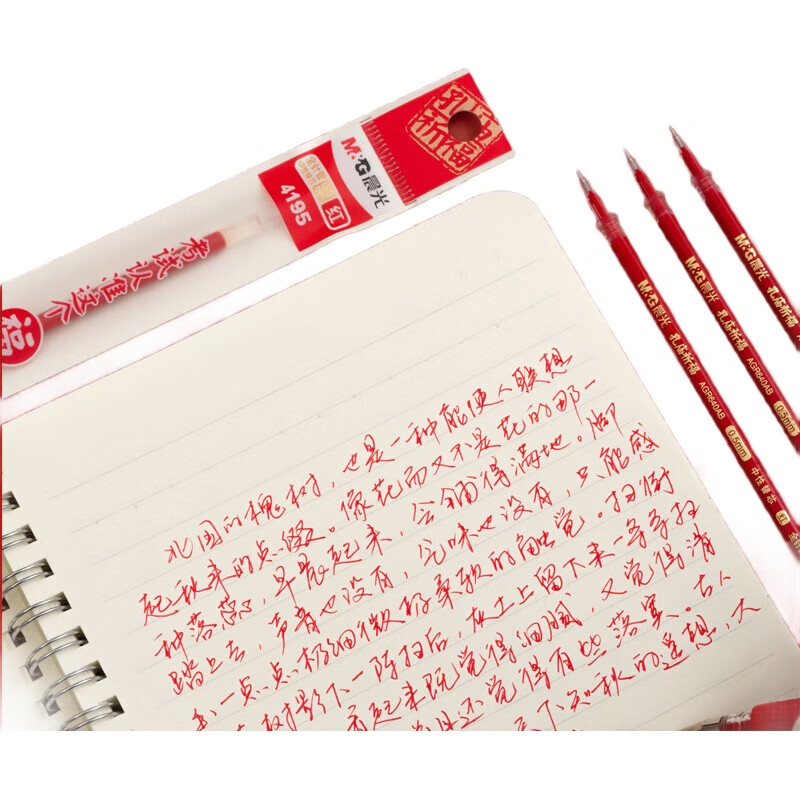 孔庙祈福
M&G晨光
全针管
红
4195
考试认准这个
福
M&G晨光 孔庙祈福 AGR640AB 0.5mm 中性替芯 红
M&G晨光 孔庙祈福 AGR640AB 0.5mm
M&G晨光 孔庙祈福
北国的槐树，也是一种能使人联想
起秋来的点缀。像花而又不是花的那一
种落蕊，早晨起来，会铺得满地。脚
踏上去，声音也没有，气味也没有，只能感
出一点点极细微极柔软的触觉。扫街
的在树影下一阵扫后，灰土上留下来一条条扫
看起来既觉得细腻，又觉得清
还觉得有些落寞。古人
天下知秋的遥想，大